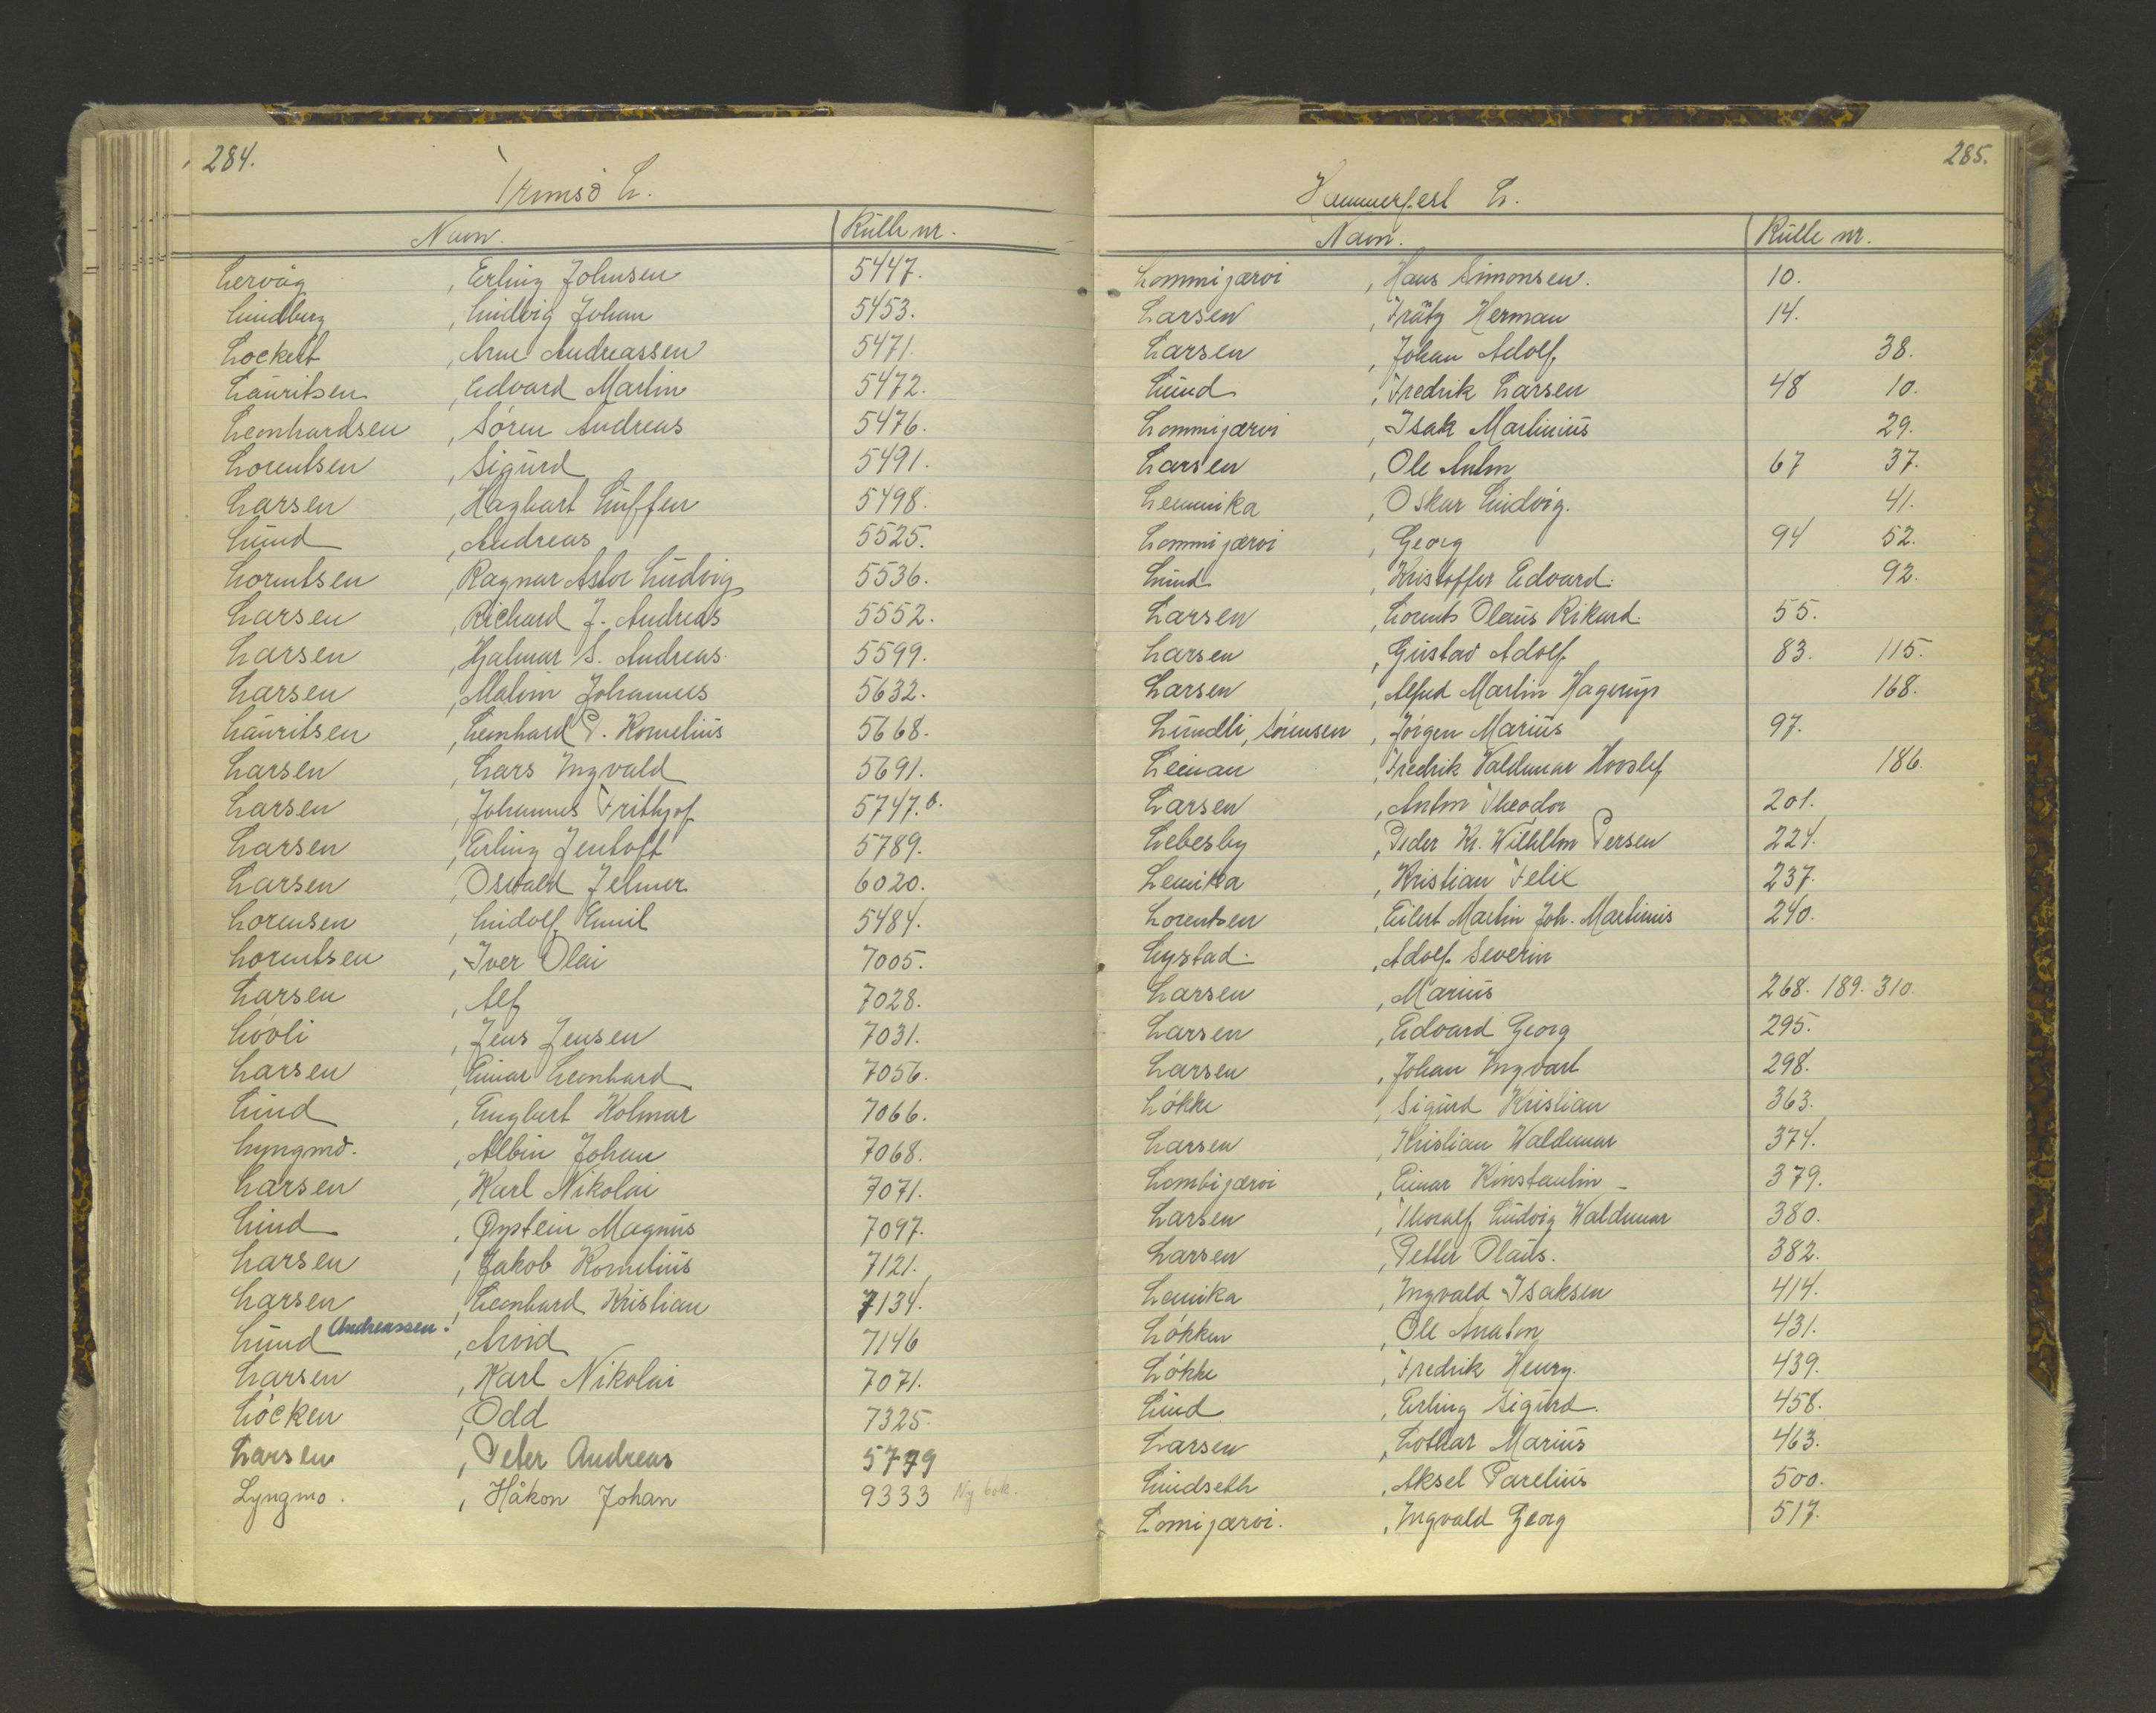 284.
Tromsö L.
Navn. Rulle nr.
Lervåg, Erling Johnsen 5447.
Lindberg, Ludvig Johan 5453.
Lockert, Arne Andreassen 5471.
Lauritsen, Edvard Martin 5472.
Leonhardsen, Sören Andreas 5476.
Lorentsen, Sigurd 5491.
Larsen, Hagbart Luffen 5498.
Lund, Andreas 5525.
Lorentsen, Ragnar Astor Ludvig 5536.
Larsen, Richard J. Andreas 5552.
Larsen, Hjalmar S. Andreas 5599.
Larsen, Malvin Johannes 5632.
Lauritsen, Leonhard P. Kornelius 5668.
Larsen, Lars Ingvald 5691.
Larsen, Johannes Frithjof 5747.b.
Larsen, Erling Jentoft 5789.
Larsen, Osvald Jelmer 6020.
Lorensen, Ludolf Emil 5484.
Lorentsen, Iver Olai 7005.
Larsen, Alf 7028.
Lövli, Jens Jensen 7031.
Larsen, Einar Leonhard 7056.
Lind, Engbert Kolmar 7066.
Lyngmö., Albin Johan 7068.
Larsen, Karl Nikolai 7071.
Lind, Öystein Magnus 7097.
Larsen, Jakob Kornelius 7121.
Larsen, Leonhard Kristian 7134.
Lund Andreassen., Arvid 7146
Larsen, Karl Nikolai 7071.
Löcken, Odd 7325.
Larsen, Peter Andreas 5779
Lyngmo., Håkon Johan 9333 Ny bok.
285.
Hammerfest L.
Navn. Rulle nr.
Lommijærvi, Hans Simonsen. 10.
Larsen, Frätz Herman 14.
Larsen, Johan Adolf 38.
Lund, Fredrik Larsen 48 10.
Lommijærvi, Isak Martinius 29.
Larsen, Ole Anton 67 37.
Leumika, Oskar Ludvig. 41.
Lommijærvi, Georg 94 52.
Lund, Kristoffer Edvard. 92.
Larsen, Lorents Olaus Rikard. 55.
Larsen, Gustav Adolf 83. 115.
Larsen, Alfred Martin Hagerup 168.
Lundli, Sörensen, Jörgen Marius 97.
Leinan, Fredrik Valdemar Hovslef 186
Larsen, Anton Theodor 201.
Lebesby, Peder Kr. Wilhelm Persen 224.
Lemika, Kristian Felix 237.
Lorentsen, Eilert Martin Joh. Martinius 240.
Lystad., Adolf Severin
Larsen, Marius 268. 189. 310.
Larsen, Edvard Georg 295.
Larsen, Johan Ingvart 298.
Lökke, Sigurd Kristian 363.
Larsen, Kristian Waldemar 374.
Lombijærvi, Einar Kinstantin - 379.
Larsen, Thoralf Ludvig Waldemar 380.
Larsen, Petter Olaus. 382.
Lemika, Ingvald Isaksen 414.
Lökken, Ole Anaton 431.
Lökke, Fredrik Henry. 439.
Lind, Erling Sigurd. 458.
Larsen, Lothar Marius 463.
Lindseth, Aksel Parelius 500.
Lomijærvi., Ingvald Georg 517.